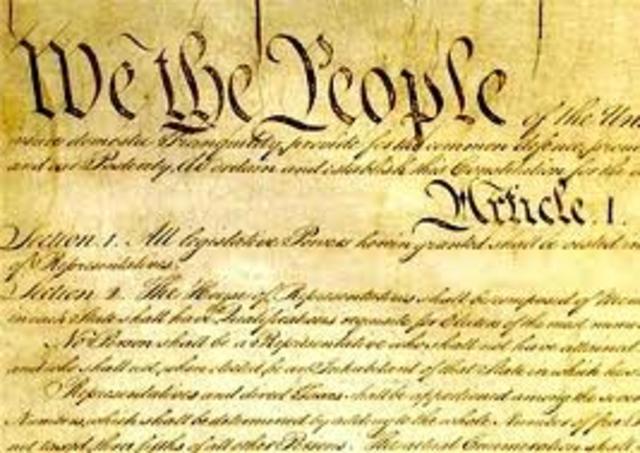 We the People of the Un
nsure domestic Tranquility, provide for the common defence, promo
and our Posterity, do ordain and establish this Constitution for the
Article. I.
Section. 1. All legislative Powers herein granted shall be vested in
of Representatives.
Section. 2. The House of Representatives shall be composed of Mem
in each State shall have Qualifications requisite for Electors of the most nume
No Person shall be a Representative who shall not have attained
and who shall not, when elected, be an Inhabitant of that State in which he
Representatives and direct Taxes shall be apportioned among the seve
Numbers, which shall be determined by adding to the whole Number of free
not taxed, three fifths of all other Persons. The actual Enumeration shall